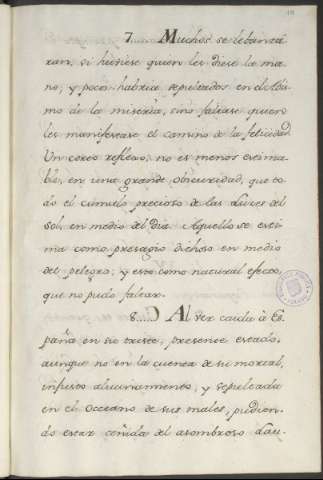 7.... Muchos se lebantá
ran, si hubiese quien les diese la ma
no, y pocos habria sepultados en el abi
mo de la miseria, sino faltase quien
les manifestase el camino de la felicidad.
Un corto reflexo, no es menos estima
ble, en una grande obscuridad, que to
do el cumulo precioso de las luzes del
Sol, en medio del Dia. Aquello se esti
ma como presagio dichoso en medio
del peligro; y esto como natural efecto,
que no pudo faltar.
8..... Al ver caida à Es
paña en su triste, presente estado,
aunque no en la cuenta de su mortal,
infausto alucinamiento, y sepultada
en el Occeano de sus males, pudien-
do estar ceñida del asombroso Lau-